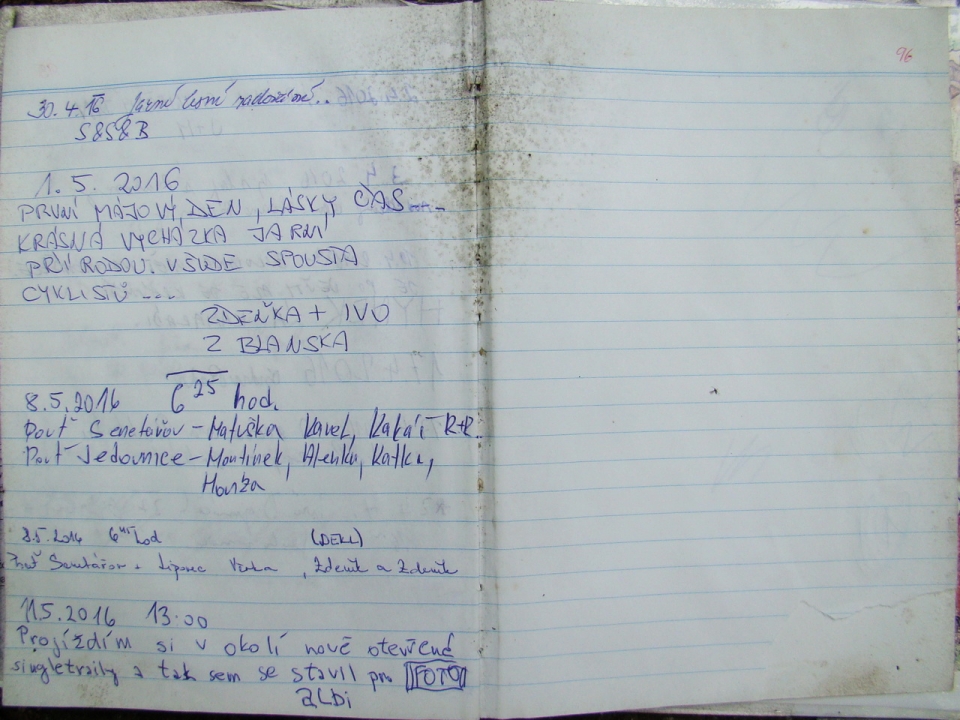 30.4.16 Jarní lesní
S&S&B
1. 5. 2016
PRVNÍ MÁJOVÝ DEN, LÁSKY ČAS....
KRÁSNÁ VYCHÁZKA JARNÍ
PŘÍRODOU. VŠUDE SPOUSTA
CYKLISTŮ ...
ZDEŇKA + IVO
Z BLANSKA
8.5.2016 6 25 hod.
Pouť Senetářov - Matuška Karel, R+R.
Pouť Jedovnice - Martínek, Alenka, Katka,
Honza
8.5.2016 hod (DEKL)
Pouť Senetářov - Lipovec , Zdeněk a Zdeněk
11.5.2016 13.00
Projíždím si v okolí nově otevřené
singletraily a tak sem se stavil pro FOTO
ALDi
96